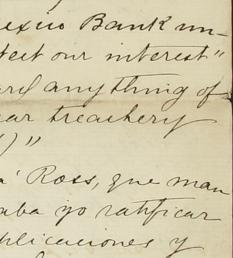 exico Bank un-
tect our interest"
ard anything of
ear treachery
")"
a' Ross, que man
aba yo ratificar
plicaciones y